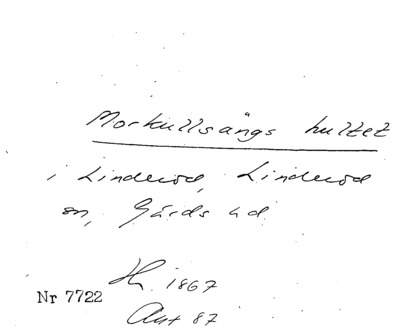 Morkullsängs hultet
i Linderöd, Linderöd
sn, Gärds hd
Hm 1867
Nr 7722
Aut 87